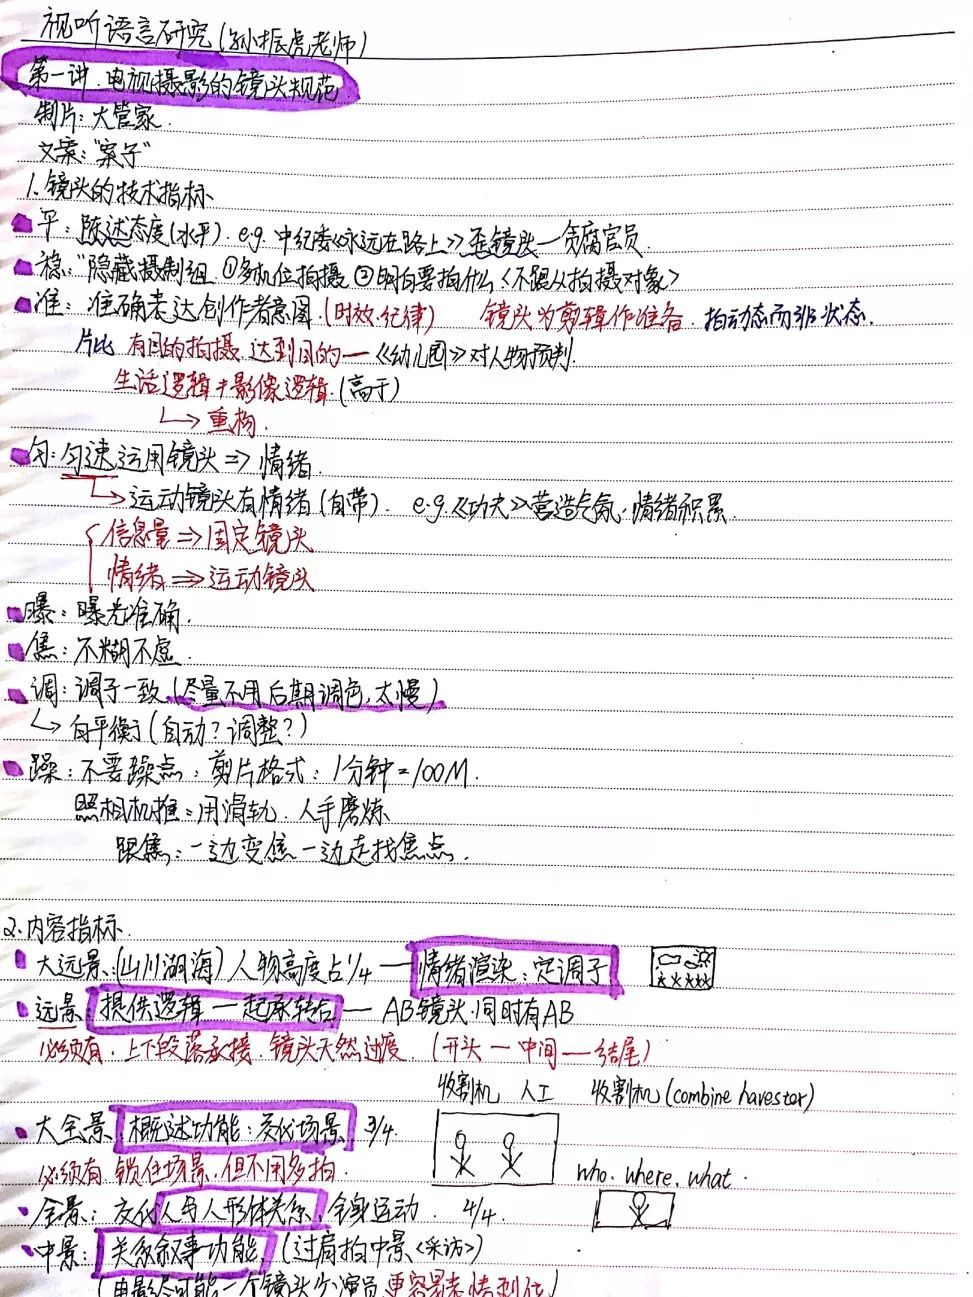 视听语言研究(孙振虎老师)
第一讲.电视摄影的镜头规范
制片:大管家.
文案:"案子"
1.镜头的技术指标
平:陈述态度(水平). e.g. 中纪委《永远在路上》歪镜头—贪腐官员.
稳:"隐藏摄制组. ①多机位拍摄 ②明白要拍什么〈不跟从拍摄对象〉
准:准确表达创作者意图.(时效.纪律) 镜头为剪辑作准备.拍动态而非状态.
片比 有目的拍摄.达到目的—《幼儿园》对人物预判.
生活逻辑≠影像逻辑.(高于)
↳重构.
匀:匀速运用镜头⇒情绪.
↳运动镜头有情绪(自带). e.g.《功夫》营造气氛.情绪积累.
信息量⇒固定镜头
情绪⇒运动镜头
曝:曝光准确.
焦:不糊不虚.
调:调子一致.(尽量不用后期调色,太慢)
↳白平衡(自动?调整?)
躁:不要躁点:剪片格式:1分钟=100M.
照相机推:用滑轨.人手磨炼
跟焦:一边变焦一边走找焦点.
2.内容指标.
大远景:(山川湖海)人物高度占1/4—情绪渲染:定调子
远景:提供逻辑—起承转合—AB镜头.同时有AB
必须有.上下段落承接.镜头天然过度.(开头—中间—结尾)
收割机 人工 收割机(combine harvester)
大全景 概述功能:交代场景 3/4.
必须有.锁住场景.但不用多拍. who.where.what.
全景:交代人与人形体关系.全身运动. 4/4.
中景:关系叙事功能.(过肩拍中景〈采访〉)
(电影尽可能一个镜头分演员.更容易表情到位)